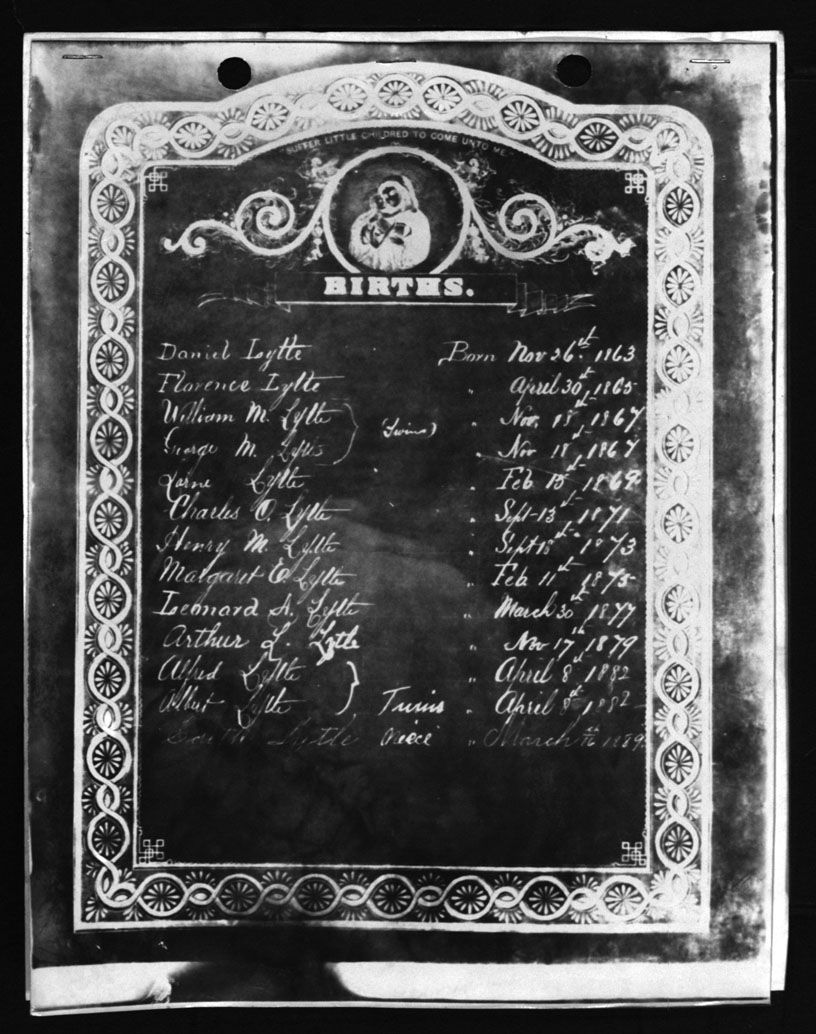 "SUFFER LITTLE CHILDRED TO COME UNTO ME"
BIRTHS.
Daniel Lytle Born Nov 26st 1863
Florence Lytle " April 30st, 1865
William M. Lytle " Nov. 18st, 1867
(Twins)
George M. Lytle " Nov 18st, 1867
Lorne Lytle " Feb 15st 1869
Charles O. Lytle " Sept 13st 1871
Henry M. Lytle " Sept 18st 1873
Margaret E Lytle " Feb 11st 1875
Leonard A. Lytle " March 30st, 1877
Arthur L. Lytle " Nov 17th 1879
Alfred Lytle " April 8st 1882
Albert Lytle Twins " April 8st 1882
Lytle niece " March 1889